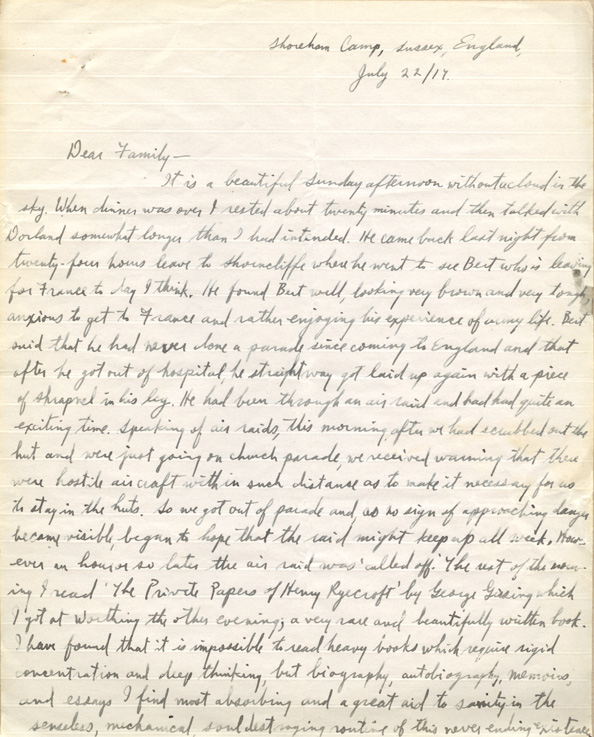 Shoreham Camp, Sussex, England,
July 22/17.
Dear Family—
It is a beautiful Sunday afternoon without a cloud in the
sky. When dinner was over I rested about twenty minutes and then talked with
Dorland somewhat longer than I had intended. He came back last night from
twenty-four hours leave to Shorncliffe where he went to see Bert who is leaving
for France to day I think. He found Bert well, looking very brown and very tough,
anxious to get to France and rather enjoying his experience of army life. Bert
said that he had never done a parade since coming to England and that
after he got out of hospital, he straightway got laid up again with a piece
of shrapnel in his leg. He had been through an air raid and had had quite an
exciting time. Speaking of air raids, this morning, after we had scrubbed out the
hut and were just going on church parade, we received warning that there
were hostile aircraft with in such distance as to make it necessary for us
to stay in the huts. So we got out of parade and, as no sign of approaching danger
became visible, began to hope that the raid might keep up all week. How-
ever an hour or so later the air raid was 'called off'. The rest of the morn-
ing I read 'The Private Papers of Henry Ryecroft' by George Gissing which
I got at Worthing the other evening; a very rare and beautifully written book.
I have found that it is impossible to read heavy books which require rigid
concentration and deep thinking, but biography, autobiography, memoirs,
and essays I find most absorbing and a great aid to sanity in the
senseless, mechanical, soul destroying routine of this never ending existence